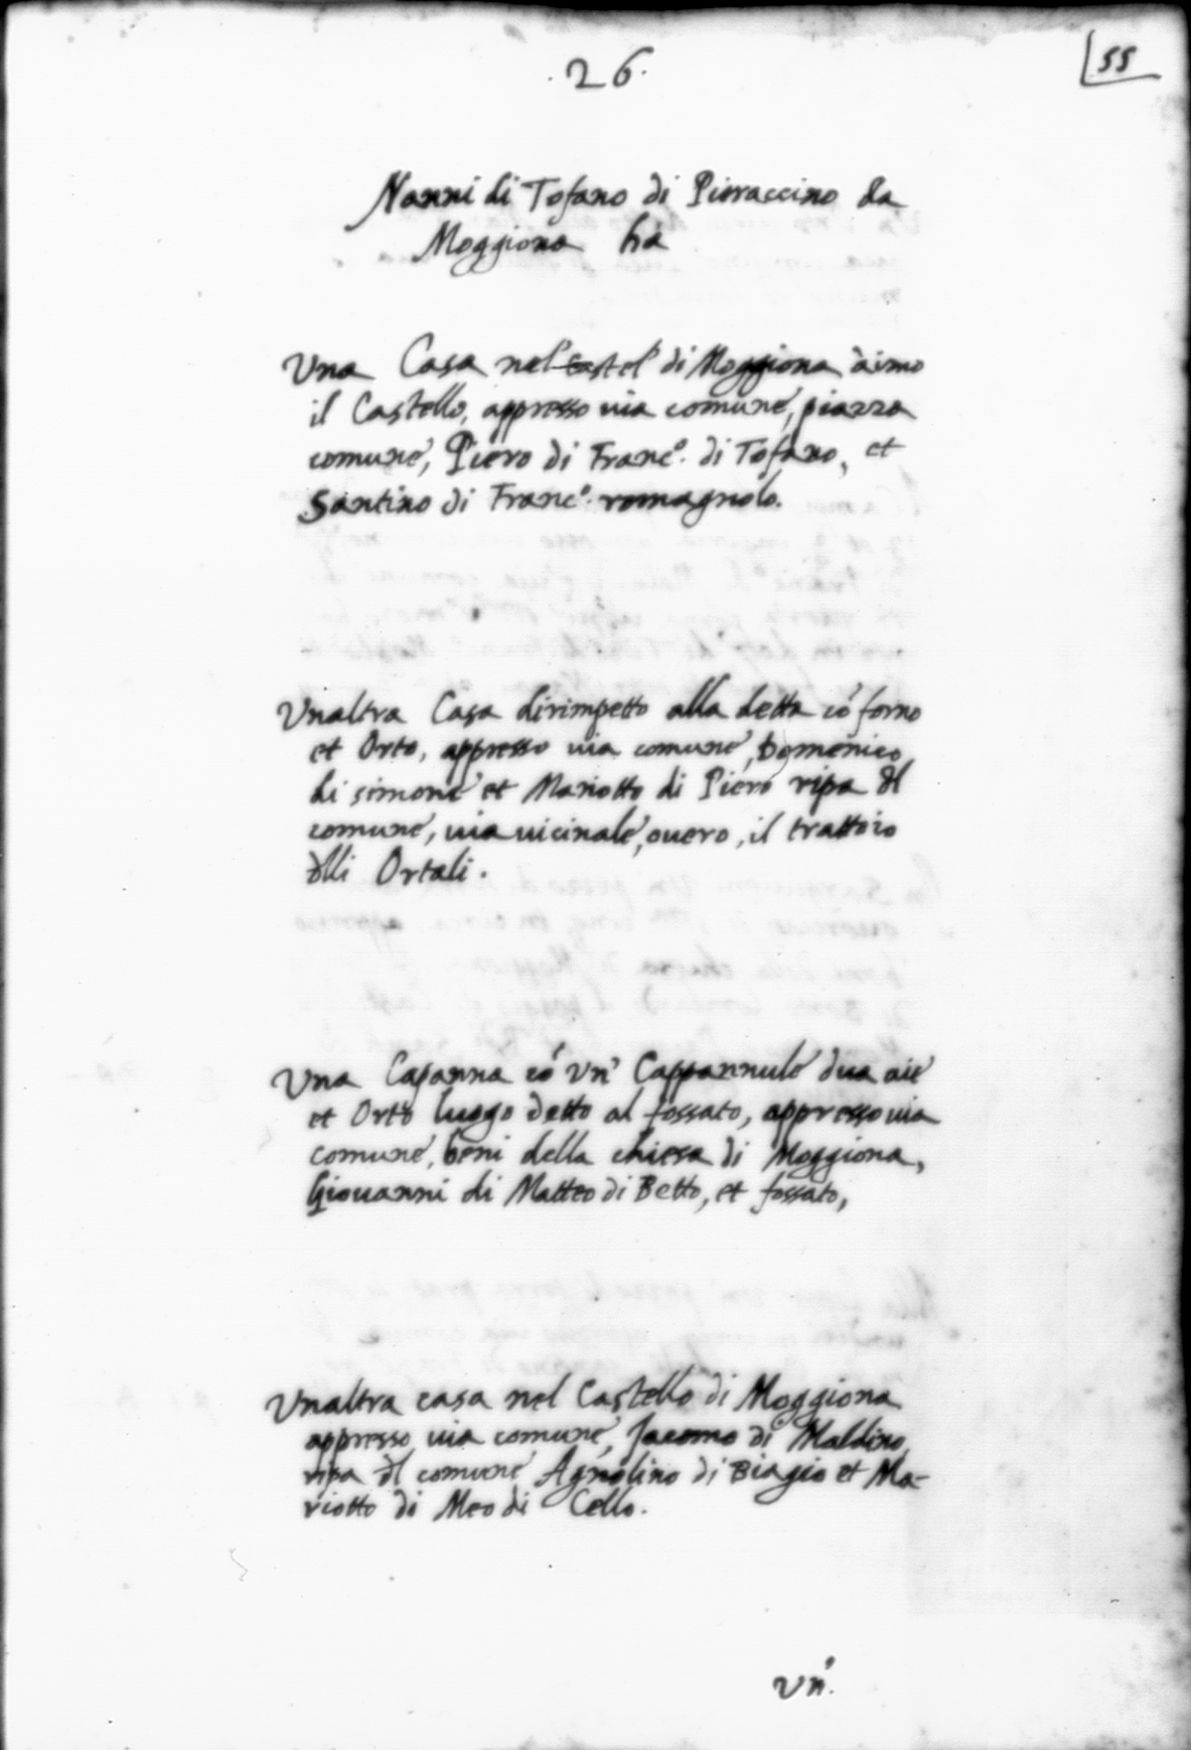 .26.
55
Nanni di Tofano di Pieraccino da
Moggiona ha
Una Casa nel Castel di Moggiona
il Castello, appresso via comune, piazza
comune, Piero di Franc.o di Tofano, et
Santino di Franc.o romagnolo.
Unaltra Casa dirimpetto alla detta cō forno
et Orto, appresso via comune, Domenico
di simone et Mariotto di Piero ripa dl
comune, via uicinale, ouero, il trattoio
dlli Ortali.
Una Capanna cō un' Cappannule dua aie
et Orto luogo detto al fossato, appresso uia
comune, beni della chiesa di Moggiona,
Giouanni di Matteo di Betto, et fossato,
Unaltra casa nel Castello di Moggiona
appresso uia comune, Jacomo di Maldino,
ripa dl comune Agnolino di Biagio et Ma-
riotto di Meo di Cello.
Un'.